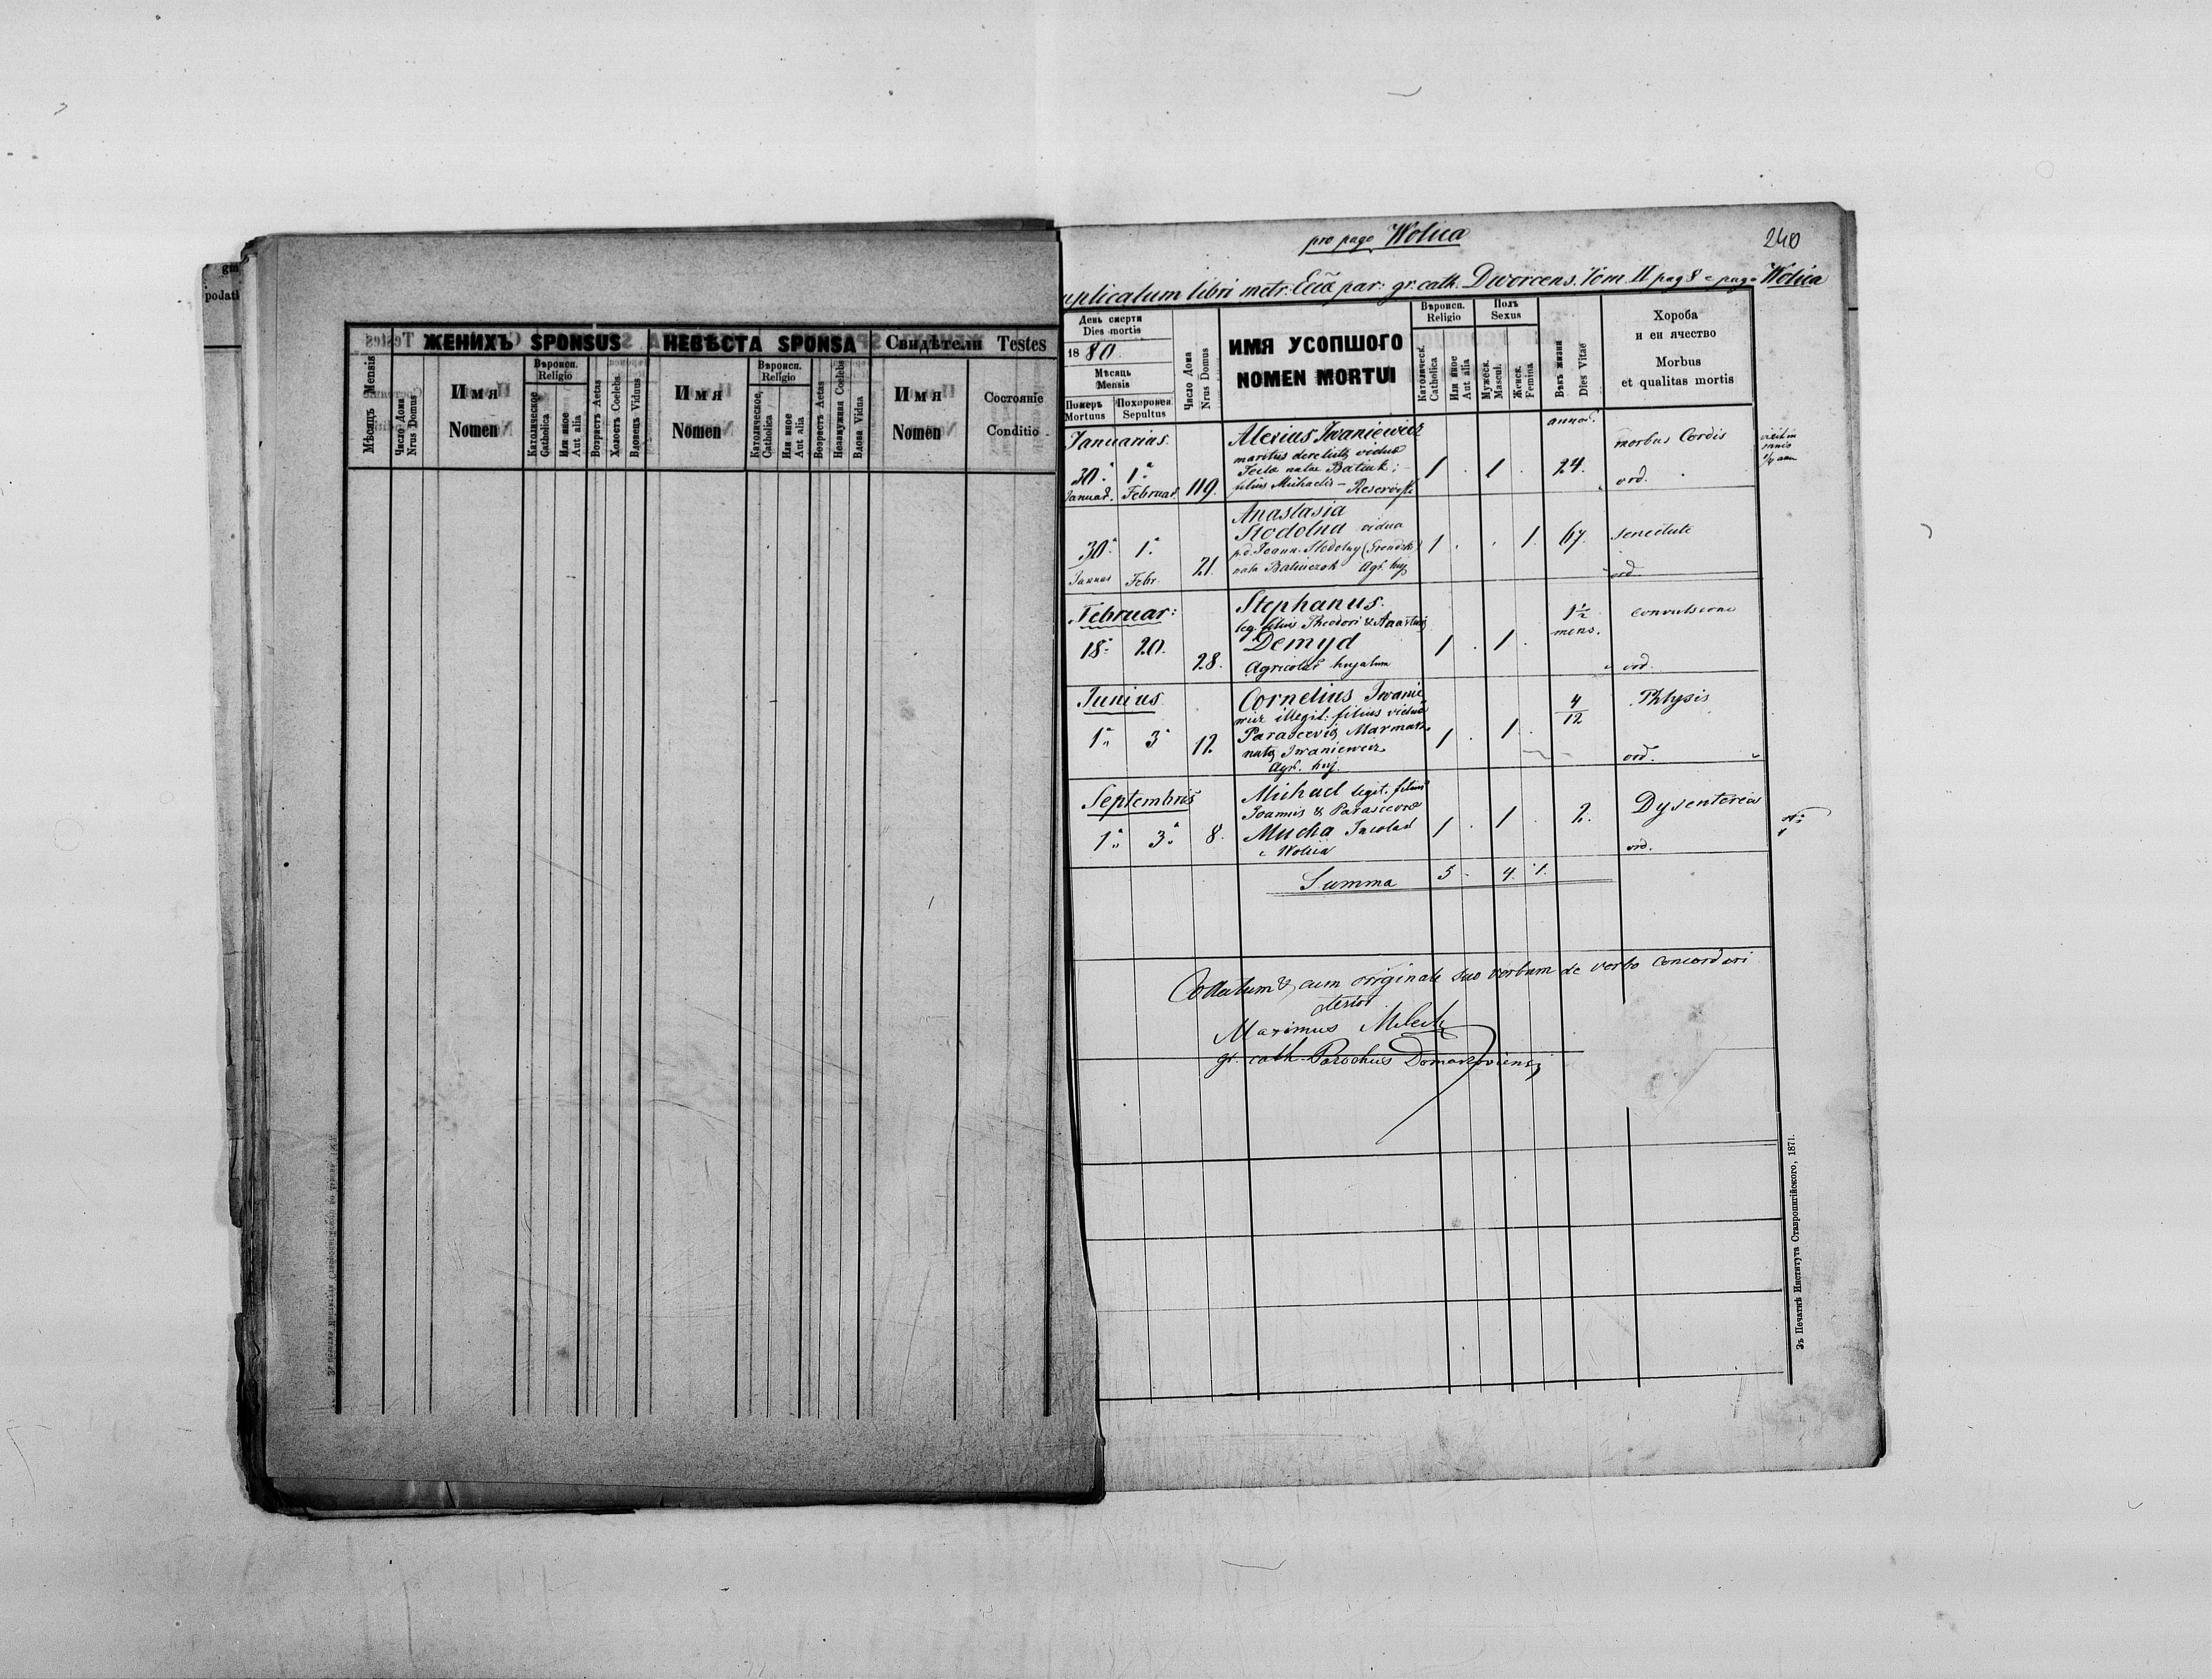 gm
podati
ЖЕНИХЪ SPONSUS
НЕВѢСТА SPONSA
Свидѣтели Testes
Мѣсяцъ Mensis
Число Дома
Nrus Domus
Имя
Nomen
Вѣроисп.
Religio
Католическое
Catholica
Или иное
Aut alia
Возрастъ Aetas
Холостъ Coelebs
Вдовецъ Viduus
Имя
Nomen
Вѣроисп.
Religio
Католическое,
Catholica
Или иное
Aut alia
Возрастъ Aetas
Незамужная Coelebs
Вдова Vidua
Имя
Nomen
Состояніе
Conditio
pro pago Wolica
240
uplicatum libri metr. Eccla par: gr. cath. Dworcens. Tom. II pag 8 e pago Wolica
День смерти
Dies mortis
1880.
Мѣсяць
Mensis
Померъ
Mortuus
Похоронен.
Sepultus
Число Дома
Nrus Domus
ИМЯ УСОПШОГО
NOMEN MORTUI
Вѣроисп.
Religio
Католическ.
Catholica
Или иное
Aut alia
Полъ
Sexus
Мужеск.
Mascul.
Женск.
Femina
Вѣкъ жизни
Dies Vitae
Хороба
и еи ячество
Morbus
et qualitas mortis
Januarius.
30. 1. 119.
Januar. Februar.
Alexius Iwaniewicz
maritus derelictae viduae
Teclae natae Batiuk;
filius Michaelis - Reservist
1 . 1 .
annos.
24.
morbus Cordis
ord.
30. 1. 21.
Januar Febr.
Anastasia
Stodolna vidua
p.d. Joann. Stodolny
nata Agr. huj
1 . . 1. 67.
senectute
ord.
Februar:
18. 20. 28.
Stephanus.
leg. filius Theodori & Anastasiae
Demyd
Agricolar hujatum
1 . 1 .
1 1/2
mens.
convulsione
ord.
Junius
1. 3. 12.
Cornelius Iwanie
wicz illegit: filius viduae
Parascevia Marmasz
nata Iwaniewicz
Agr. huj.
1 . 1 .
4/12
Phtysis
ord.
Septembris
1. 3. 8.
Michael legit. filius
Joannis & Parascevae
Mucha Incolar
e Wolica
1 . 1 . 2.
Dysenteria
ord.
Summa 5 - 4. 1.
Collatum & cum originale suo verbum de verbo concordari
testor
Maximus
gr. cath. Parochus
Зъ Печатнѣ Института Ставропигійского, 1871.